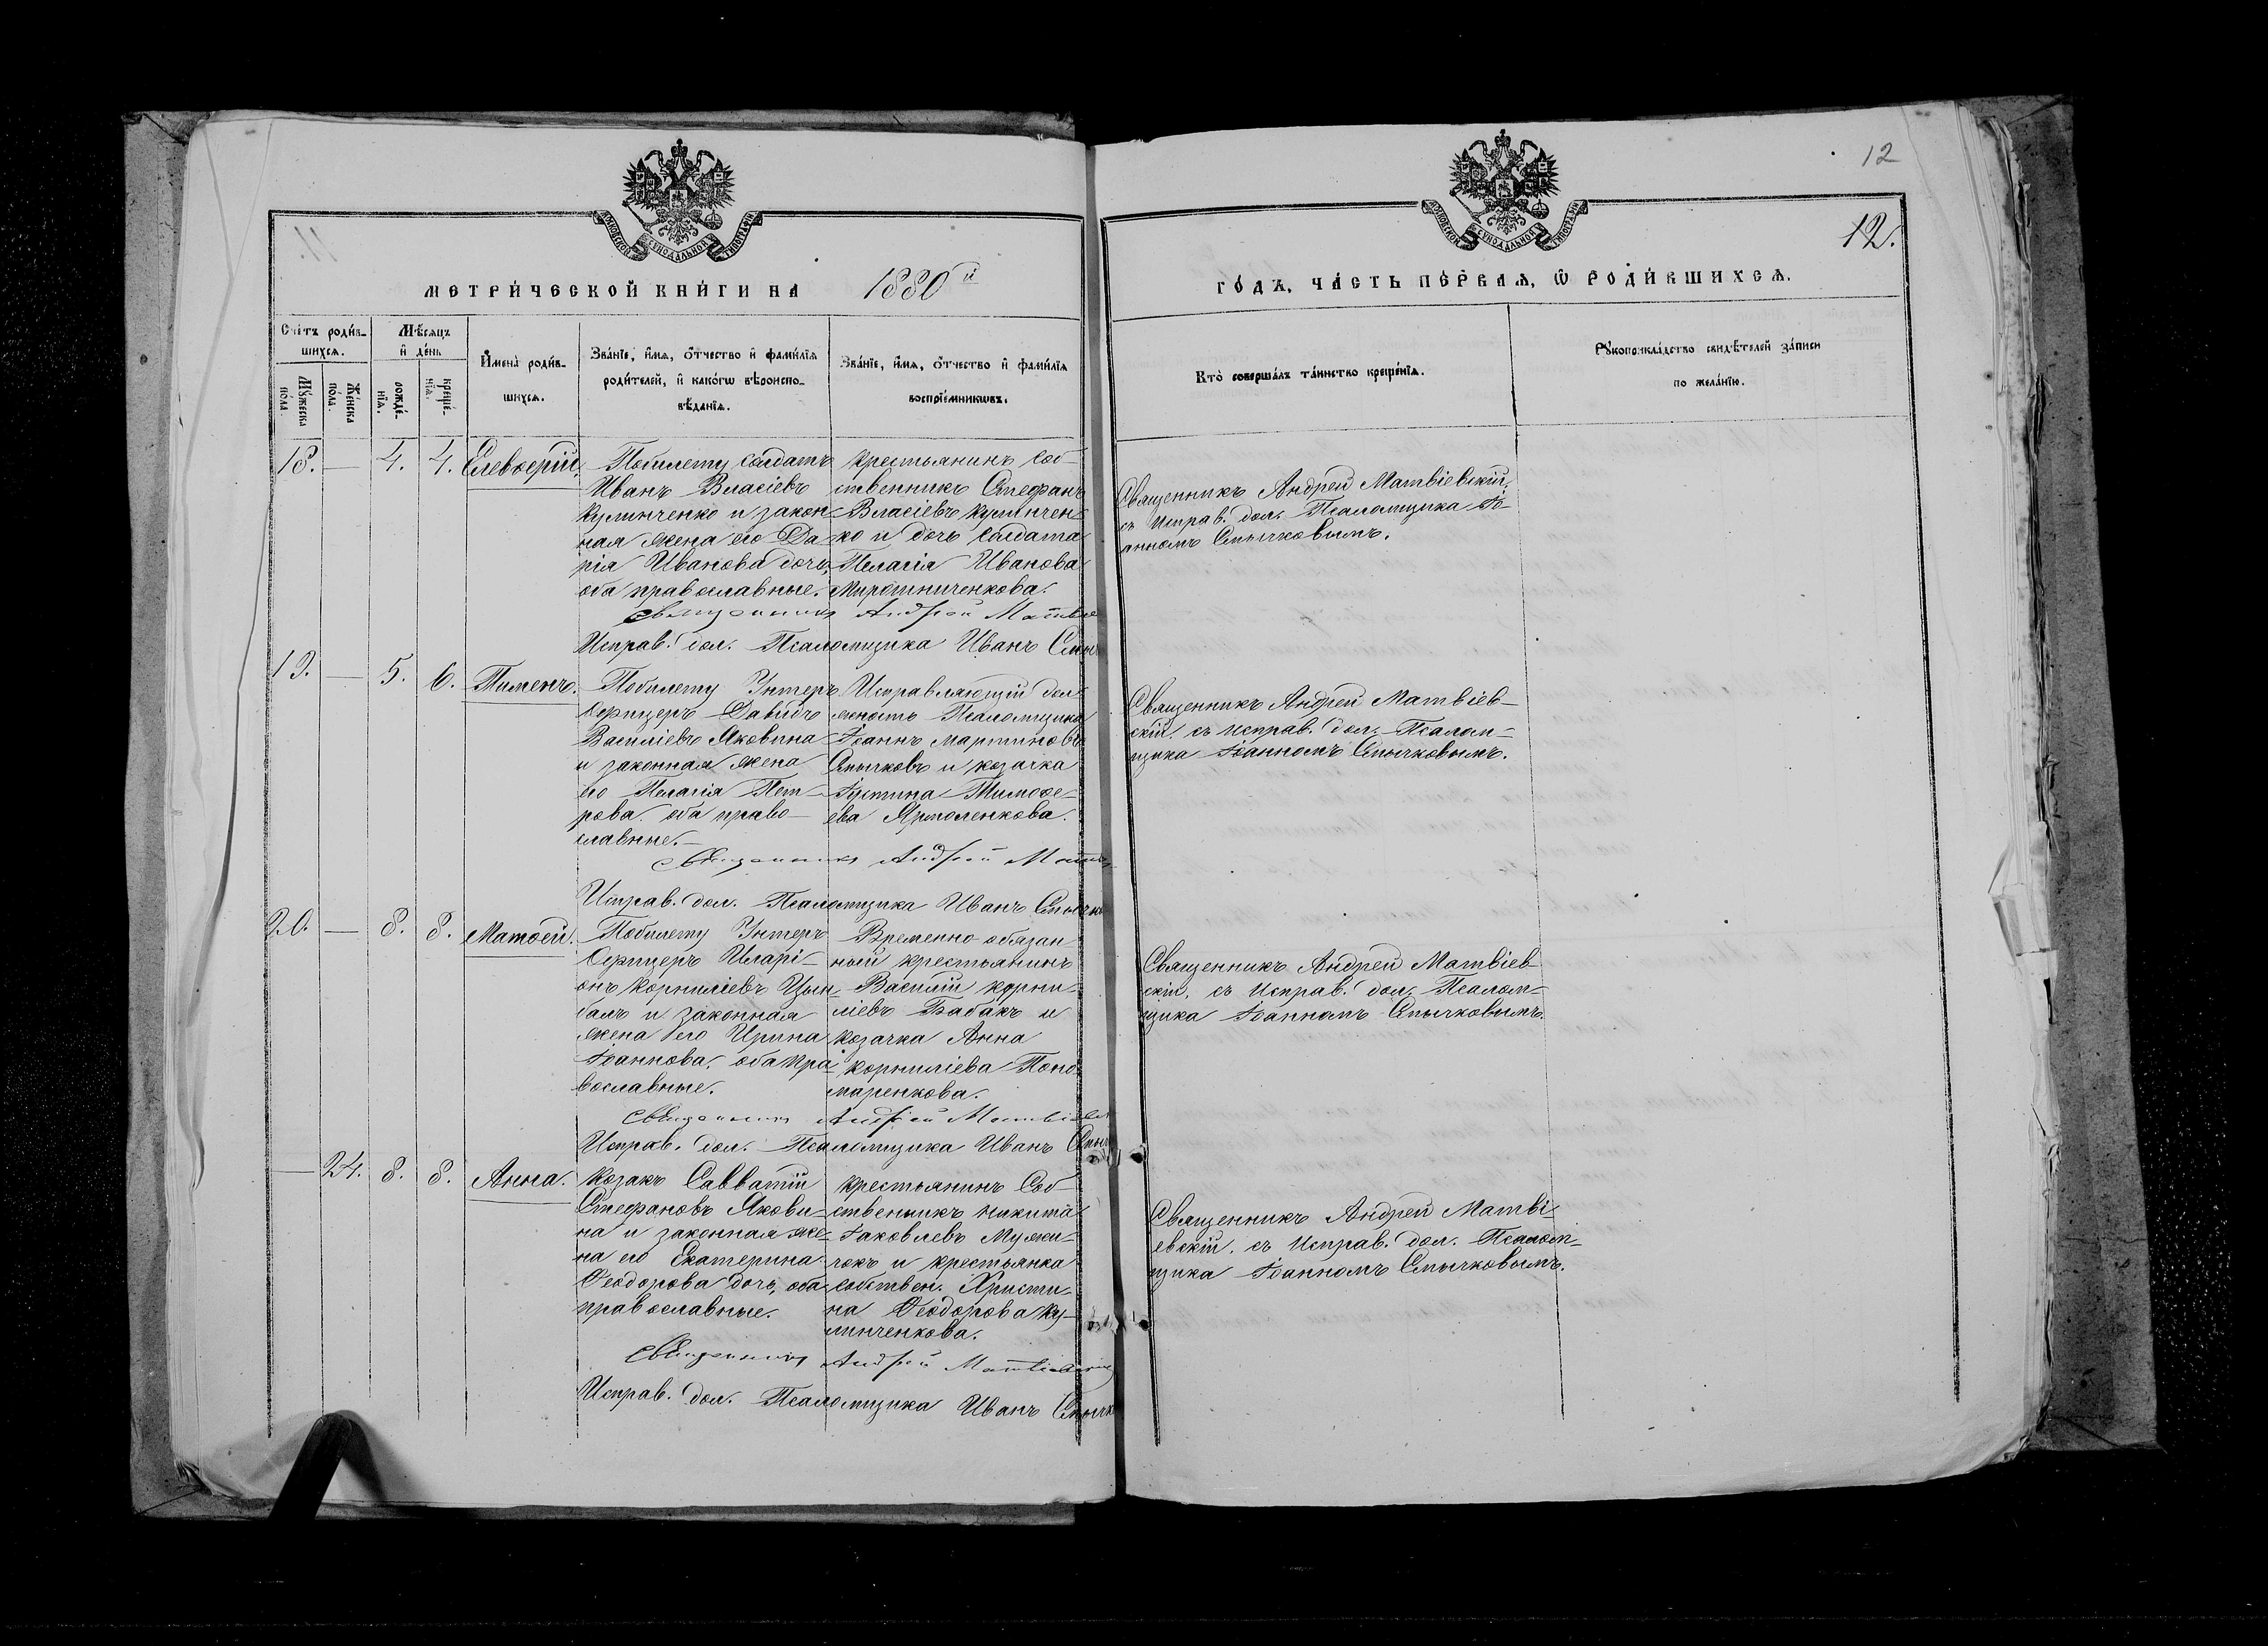 12
12.
МОСКОВСКОЙ СѴНОДАЛЬНОЙ ТИПОГРАФІИ
МОСКОВСКОЙ СѴНОДАЛЬНОЙ ТИПОГРАФІИ
МЕТРИ́ЧЕСКОЙ КНИ́ГИ НА 1880й
ГО́ДЪ, ЧА́СТЬ ПЕ́РВАѦ, Ѽ РОДИ́ВШИХСѦ.
Сче́тъ роди́в-
шихсѧ.
Мѣ́сѧцъ
и҆ де́нь
Му́жеска
пола.
Же́нска
пола.
рожде́-
нїѧ.
креще́-
нїѧ.
И҆мена̀ роди́в-
шихсѧ.
Зва́нїе, и҆́мѧ, ѻ҆́тчество и҆ фами́лїѧ
роди́телей, и҆ како́гѡ вѣроиспо-
вѣ́данїѧ.
Зва́нїе, и҆́мѧ, ѻ҆́тчество и҆ фами́лїѧ
воспрїе́мникѡвъ.
Кто̀ соверша́лъ та́инство креще́нїѧ.
Рꙋкоприкла́дство свидѣ́телей за́писи
по жела́нїю.
18. — 4. 4. Елевѳерій.
Побилету солдатъ
Иванъ Власіевъ
Кулинченко и закон-
ная жена его Да-
рія Иванова дочь,
оба православные.
Крестьянинъ соб-
ственникъ Стефанъ
Власіевъ Кулинчен-
ко и дочь солдата
Пелагія Иванова
Мирошниченкова.
Священникъ Андрей Матвіевскій,
съ исправ. дол. Псаломщика Іо-
анномъ Смычковымъ.
Священникъ Андрей Матвіе
Исправ. дол. Псаломщика Иванъ Смыч
19. — 5. 6. Пименъ.
Побилету Унтеръ
Офицеръ Давидъ
Василіевъ Яковина
и законная жена
его Пелагія Пет-
рова. оба право-
славные.—
Исправляющій дол-
жность Псаломщика
Іоаннъ Мартиновъ
Смычковъ и козачка
Іустина Тимоѳе-
ева Ярмоленкова.
Священникъ Андрей Матвіев-
скій, съ исправ. дол. Псалом-
щика Іоанномъ Смычковымъ.
Священникъ Андрей Матвіев
Исправ. дол. Псаломщика Иванъ Смычко
20. — 8. 8. Матѳей.
Побилету Унтеръ
Офицеръ Иларі-
онъ Корниліевъ Цым-
балъ и законная
жена его Ирина
Іоаннова, оба пра-
вославные.
Временно-обязан-
ный крестьянинъ
Василій Корни-
ліевъ Бабакъ и
козачка Анна
Корниліева Поно-
маренкова.
Священникъ Андрей Матвіев-
скій, съ исправ. дол. Псалом-
щика Іоанномъ Смычковымъ.
Священникъ Андрей Матвіевс
Исправ. дол. Псаломщика Иванъ Смыч
— 24. 8. 8. Анна.
Козакъ Савватій
Стефановъ Якови-
на и законная же-
на его Екатерина
Ѳеодорова дочь, оба
православные.
Крестьянинъ Соб-
ственникъ Никита
Іаковлевъ Мужи-
чокъ и крестьянка
собствен. Христи-
на Ѳеодорова Ку-
линченкова.
Священникъ Андрей Матві-
евскій, съ исправ. дол. Псалом-
щика Іоанномъ Смычковымъ.
Священникъ Андрей Матвіевскій
Исправ. дол. Псаломщика Иванъ Смычк